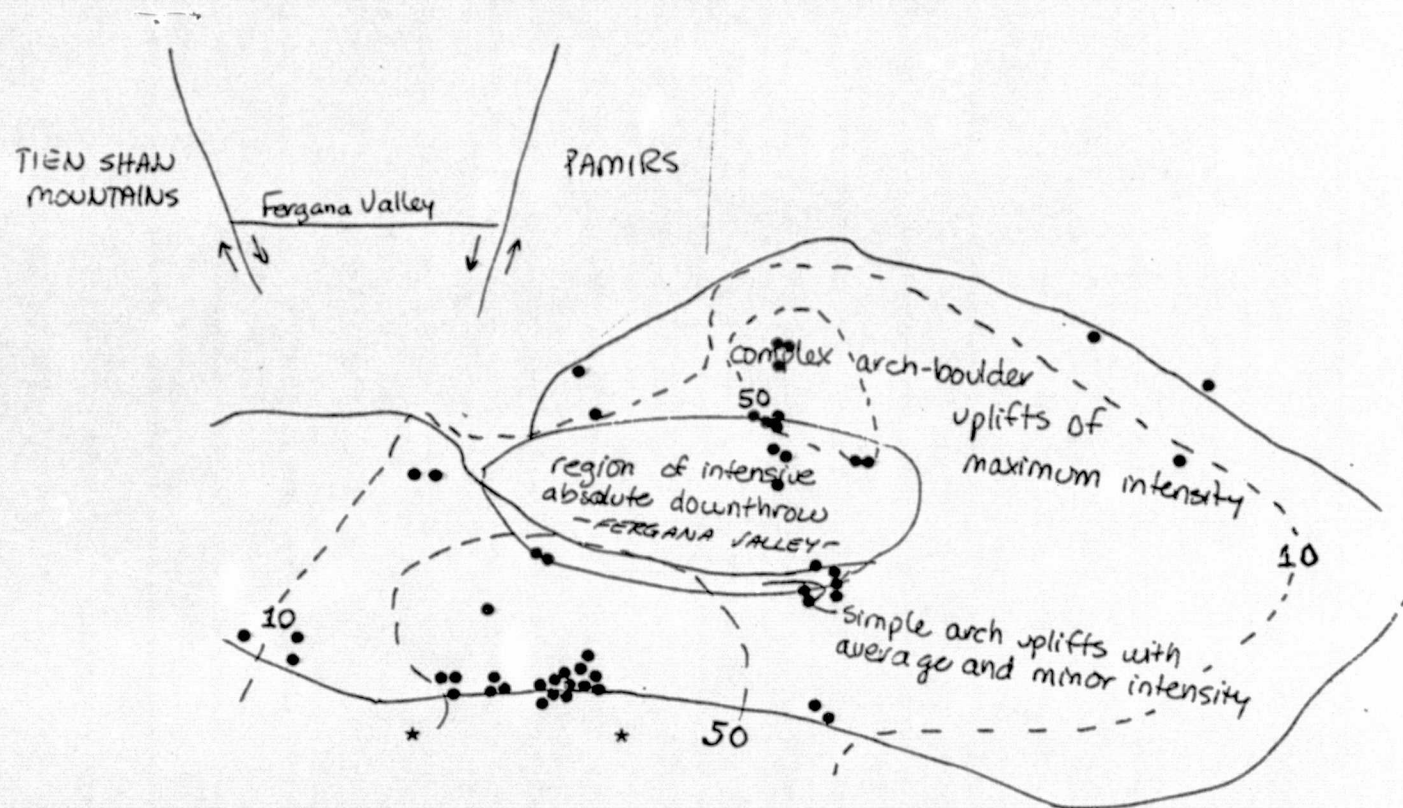 TIEN SHAN
MOUNTAINS
Fergana Valley
PAMIRS
complex arch-boulder
uplifts of
maximum intensity
50
region of intensive
absolute downthrow
-FERGANA VALLEY-
10
10
simple arch uplifts with
average and minor intensity
* * 50